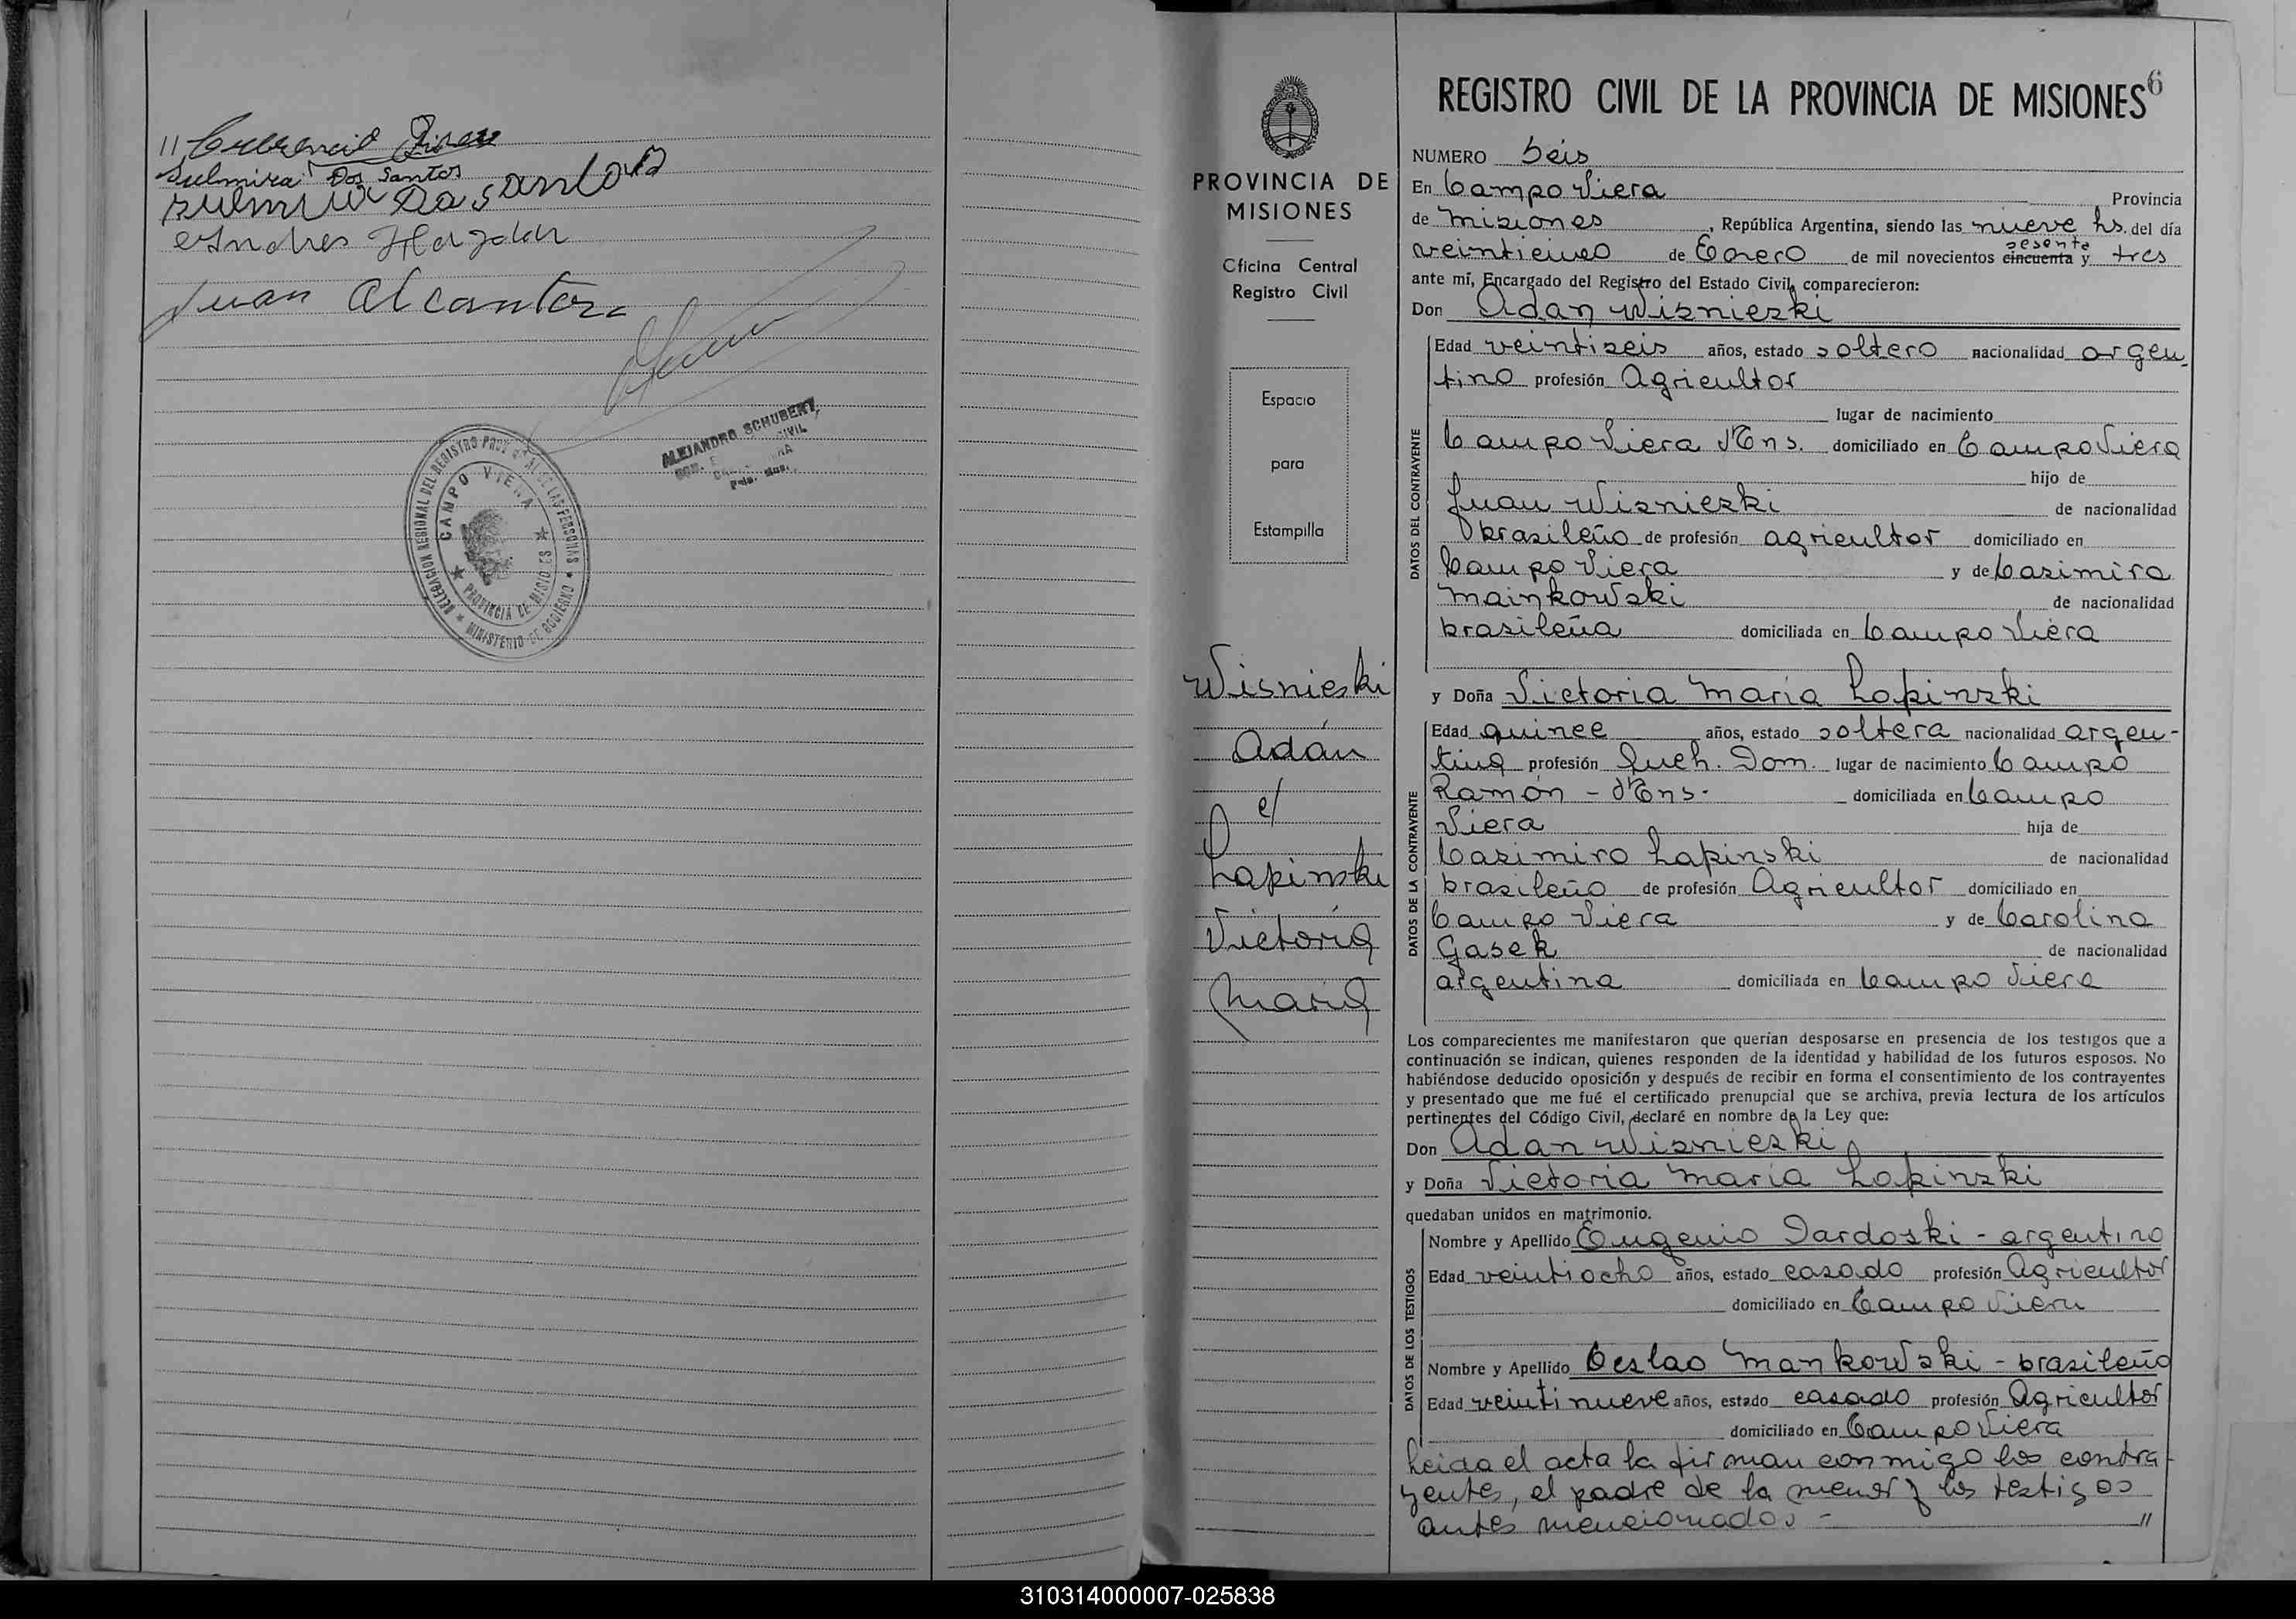 Sulmira Dos Santos
Dos Santos
Andres
Juan Alcantara
ALEJANDRO SCHUBERT
CIVIL
DELEGACION REGIONAL DEL REGISTRO PROVINCIAL DE LAS PERSONAS
MINISTERIO DE GOBIERNO
CAMPO VIERA
PROVINCIA DE MISIONES
PROVINCIA DE
MISIONES
Oficina Central
Registro Civil
Espacio
para
Estampilla
Wisnieski
Adán
c/
Lapinski
Victoria
María
REGISTRO CIVIL DE LA PROVINCIA DE MISIONES 6
NUMERO Seis
En Campo Viera Provincia
de Misiones, República Argentina, siendo las nueve hs. del día
sesenta
veinticinco de Enero de mil novecientos cincuenta y tres
ante mí, Encargado del Registro del Estado Civil, comparecieron:
Don Adan Wisnieski
Edad veintiseis años, estado soltero nacionalidad argen-
tino profesión Agricultor
lugar de nacimiento
Campo Viera Mns. domiciliado en Campo Viera
hijo de
Juan Wisnieski de nacionalidad
brasileño de profesión agricultor domiciliado en
Campo Viera y de Casimira
Mainkowski de nacionalidad
brasileña domiciliada en Campo Viera
DATOS DEL CONTRAYENTE
y Doña Victoria María Lapinski
Edad quince años, estado soltera nacionalidad argen-
tina profesión Queh. Dom. lugar de nacimiento Campo
Ramón - Mns. domiciliada en Campo
Viera hija de
Casimiro Lapinski de nacionalidad
brasileño de profesión Agricultor domiciliado en
Campo Viera y de Carolina
Gasek de nacionalidad
argentina domiciliada en Campo Viera
DATOS DE LA CONTRAYENTE
Los comparecientes me manifestaron que querían desposarse en presencia de los testigos que a
continuación se indican, quienes responden de la identidad y habilidad de los futuros esposos. No
habiéndose deducido oposición y después de recibir en forma el consentimiento de los contrayentes
y presentado que me fué el certificado prenupcial que se archiva, previa lectura de los artículos
pertinentes del Código Civil, declaré en nombre de la Ley que:
Don Adan Wisnieski
y Doña Victoria María Lapinski
quedaban unidos en matrimonio.
Nombre y Apellido Eugenio Dardoski - argentino
Edad veintiocho años, estado casado profesión Agricultor
domiciliado en Campo Viera
Nombre y Apellido Ceslao Mankowski - brasileño
Edad veintinueve años, estado casado profesión Agricultor
domiciliado en Campo Viera
DATOS DE LOS TESTIGOS
Leida el acta la firman conmigo los contra-
yentes, el padre de la menor y los testigos
antes mencionados - //
310314000007-025838